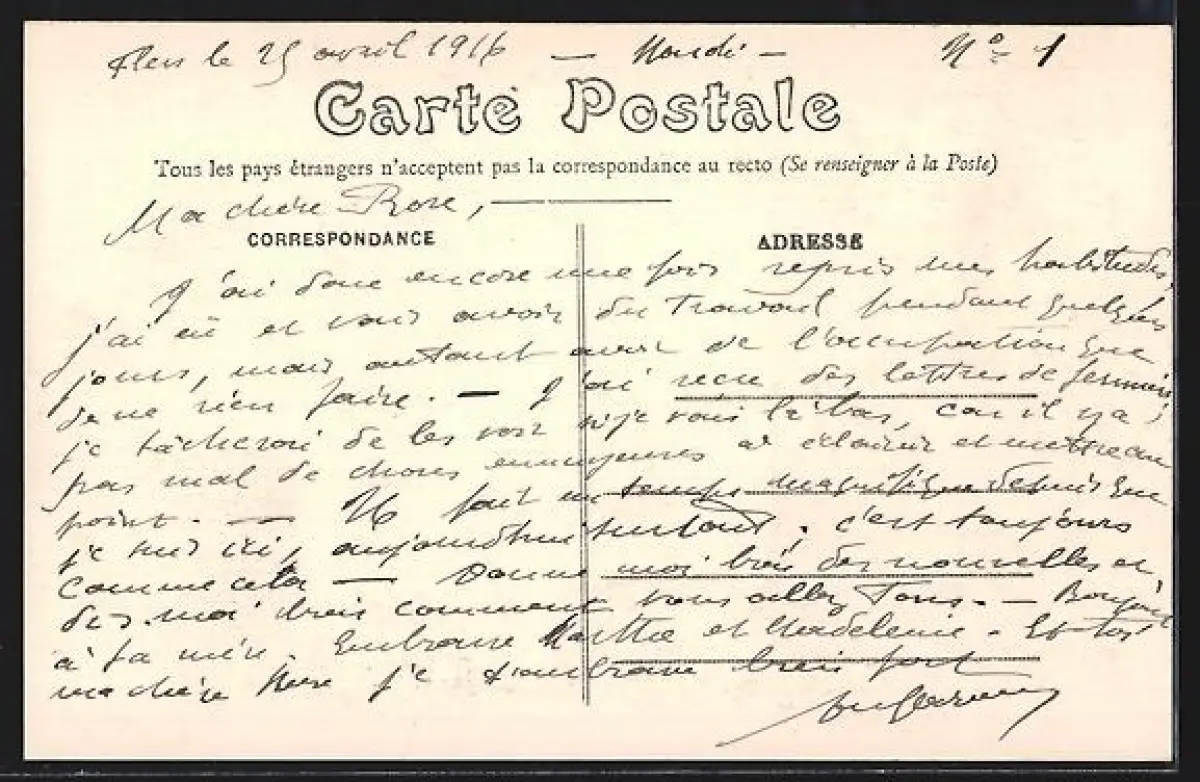 Flers le 25 avril 1916 — Mardi — N° 1
Carte Postale
Tous les pays étrangers n'acceptent pas la correspondance au recto (Se renseigner à la Poste)
Ma chère Rose,
CORRESPONDANCE
ADRESSE
J'ai donc encore une fois repris mes habitudes,
j'ai eu et vais avoir du travail pendant quelques
jours, mais autant avoir de l'occupation que
de ne rien faire. — J'ai reçu des lettres de
je tâcherai de les voir si je vais là bas, car il y a
pas mal de choses ennuyeuses à éclaircir et mettre au
point. — Il fait un temps magnifique depuis que
je suis ici, aujourd'hui surtout, c'est toujours
comme cela — Donne moi bien des nouvelles et
dis-moi bien comment vous allez Tous. — Bonjour
à ta mère. Embrasse Marthe et Madeleine. Et toi
ma chère Rose je t'embrasse bien fort